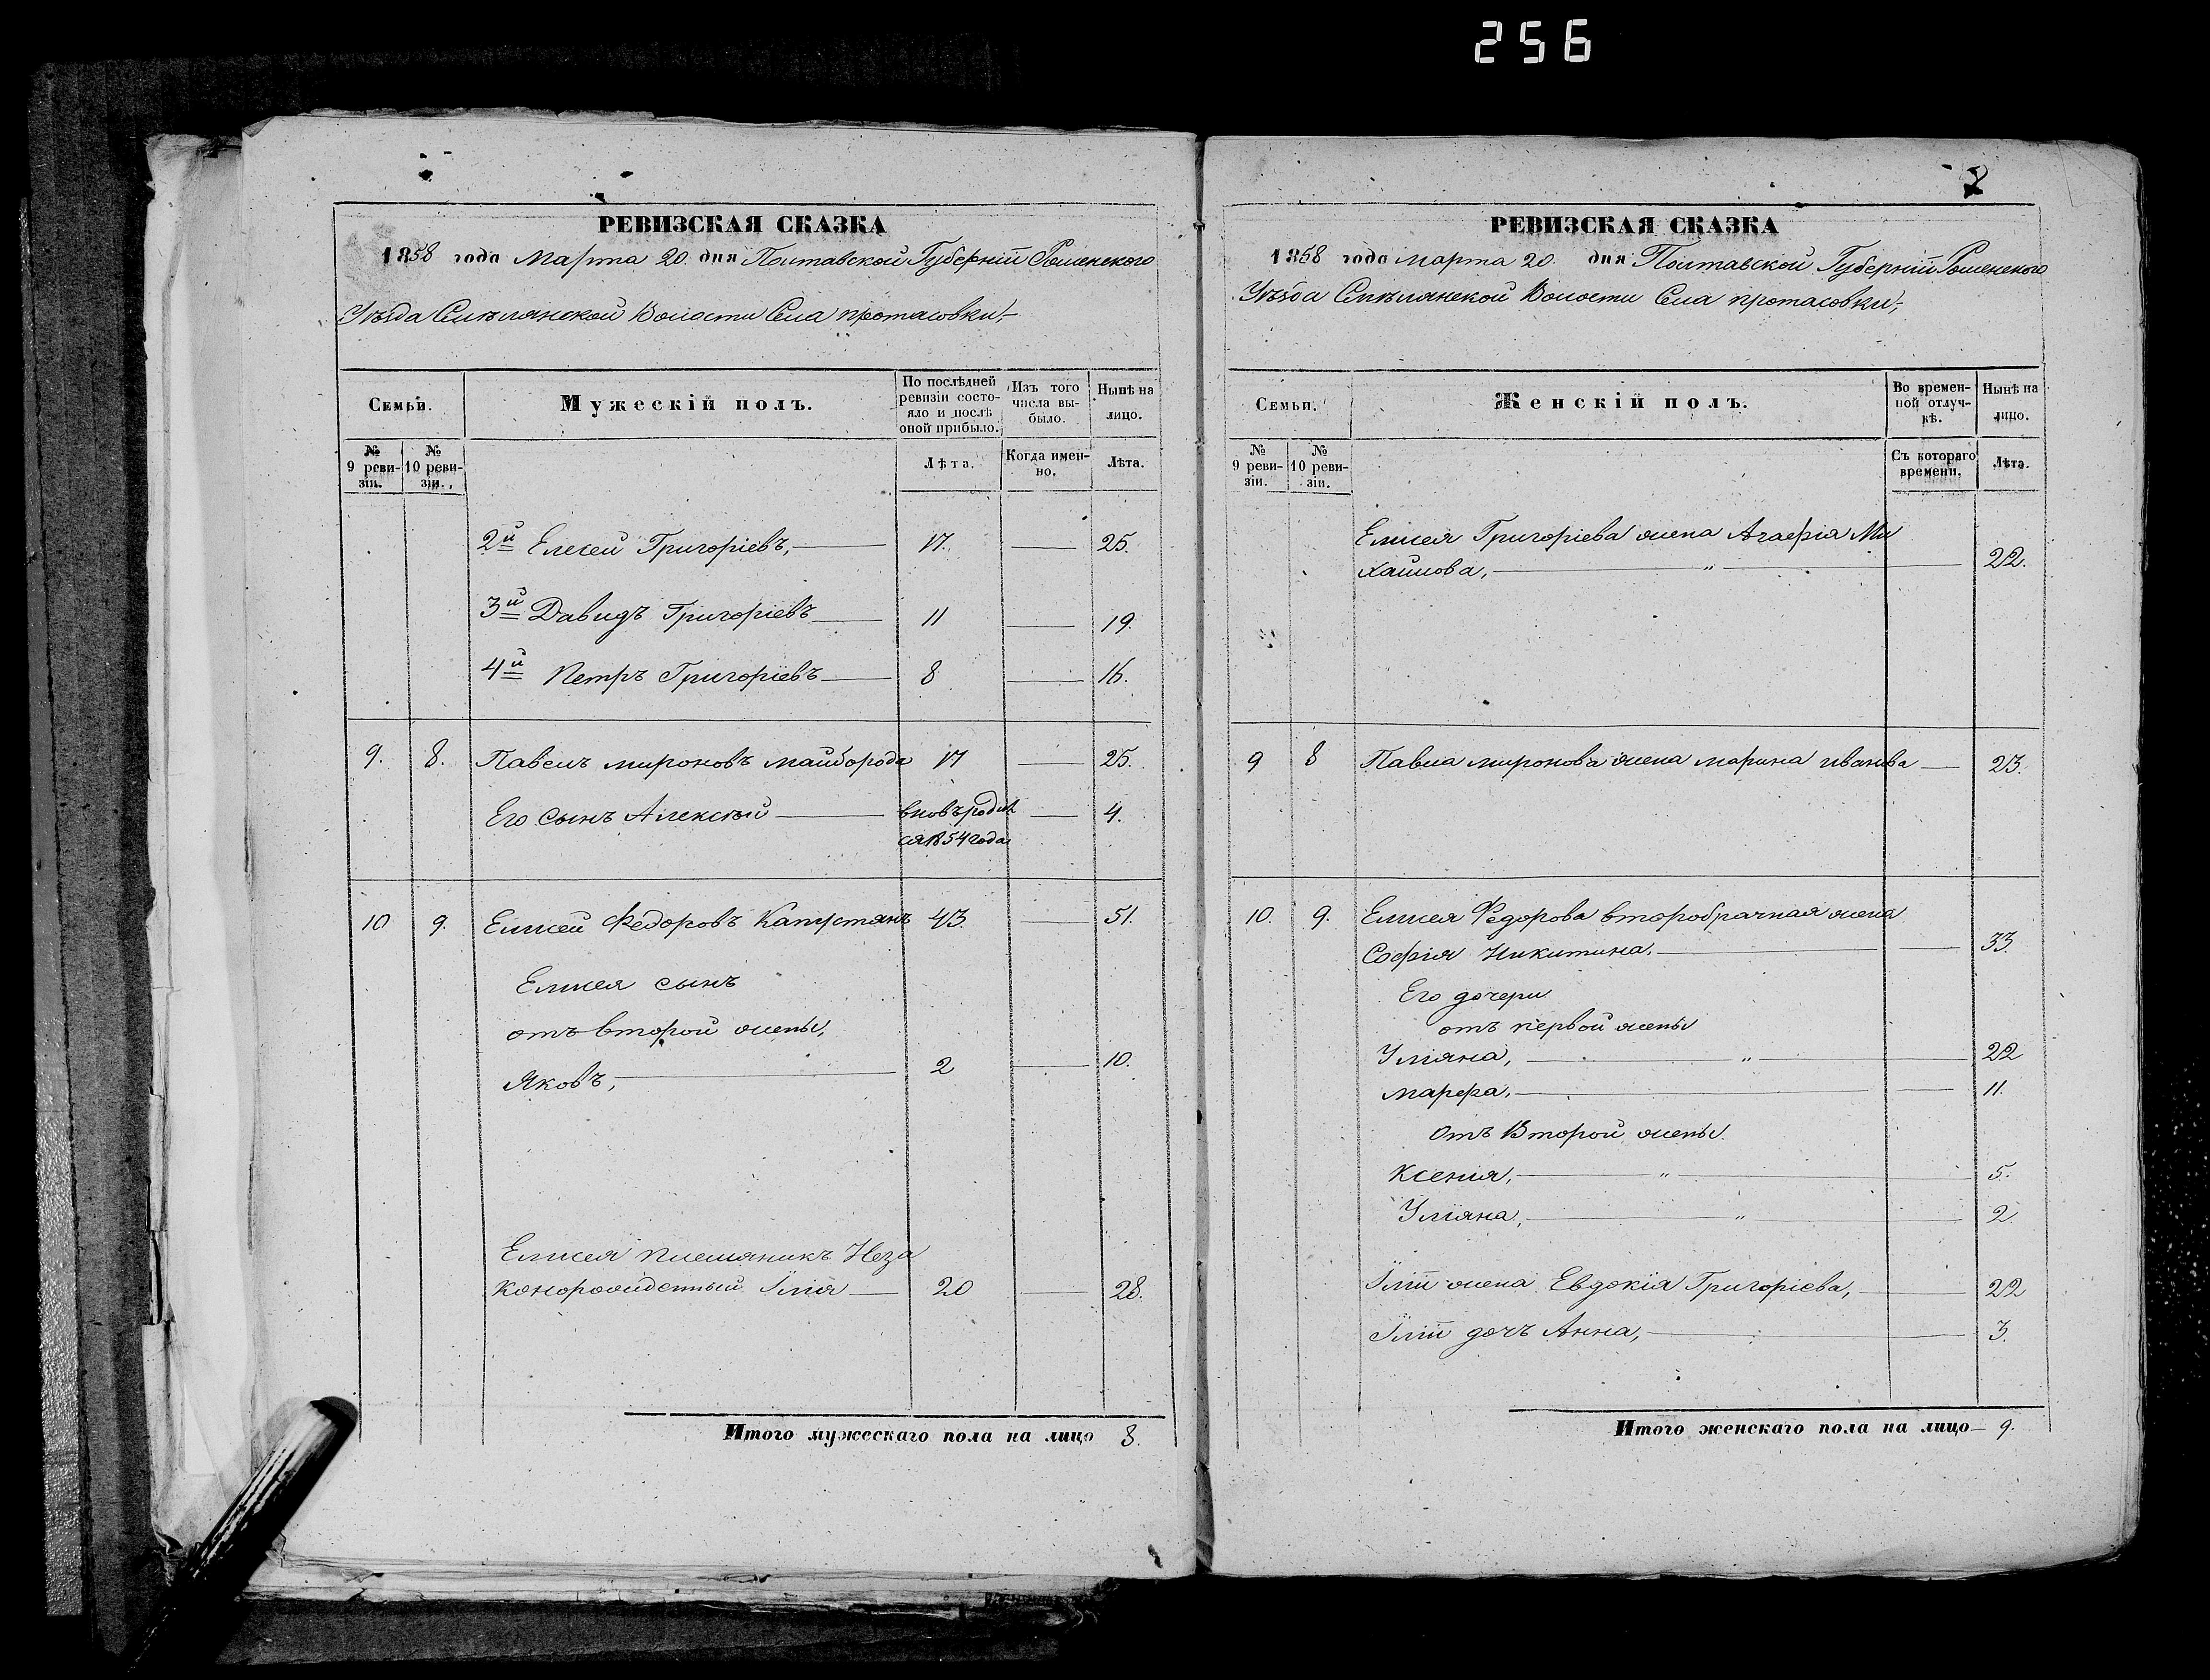 256
РЕВИЗСКАЯ СКАЗКА
1858 года Марта 20 дня Полтавской Губернїи Роменского
Уѣзда Смѣлянской Волости Села протасовки,
Семьи.
Мужескій полъ.
По послѣдней ревизіи состояло и послѣ оной прибыло.
Изъ того числа выбыло.
Нынѣ на лицо.
№ 9 ревизіи.
№ 10 ревизіи.
Лѣта.
Когда именно.
Лѣта.
2й Елесей Григоріевъ, 17. 25.
3й Давидъ Григоріевъ 11 19.
4й Петръ Григоріевъ 8 16.
9. 8. Павелъ мироновъ майборода 17 25.
Его сынъ Алексѣй вновь родил 4.
ся 1854 года
10 9. Елисей Федоровъ Капустянъ 43. 51.
Елисея сынъ
отъ второй жены,
Яковъ, 2 10.
Елисея племяникъ Неза
конорожденный Їлія 20 28.
Итого мужескаго пола на лицо 8.
РЕВИЗСКАЯ СКАЗКА
1858 года марта 20 дня Полтавской Губернїи Роменского
Уѣзда Смѣлянской Волости Села протасовки,
Семьи.
Женскій полъ.
Во временной отлучкѣ.
Нынѣ на лицо.
№ 9 ревизіи.
№ 10 ревизіи.
Съ котораго времени.
Лѣта.
Елисея Григоріева жена Агафія Ми
хайлова, 22.
9 8 Павла миронова жена марина иванова 23.
10. 9. Елисея Федорова второбрачная жена
Софія Никитина. 33
Его дочери
отъ первой жены
Уліяна, 22
марфа. 11.
Отъ Второй жены
Ксенія, 5.
Уліяна, 2
Їліи жена Евдокія Григоріева, 22
Їліи дочь Анна, 3.
Итого женскаго пола на лицо 9.